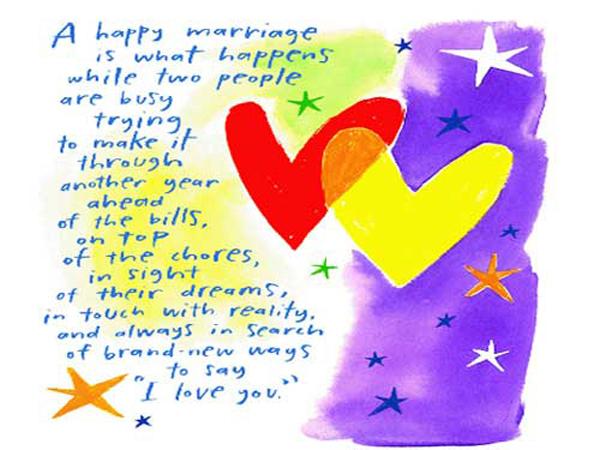 A happy marriage
is what happens
while two people
are busy
trying
to make it
through
another year
ahead
of the bills,
on top
of the chores,
in sight
of their dreams,
in touch with reality,
and always in search
of brand-new ways
to say
"I love you."